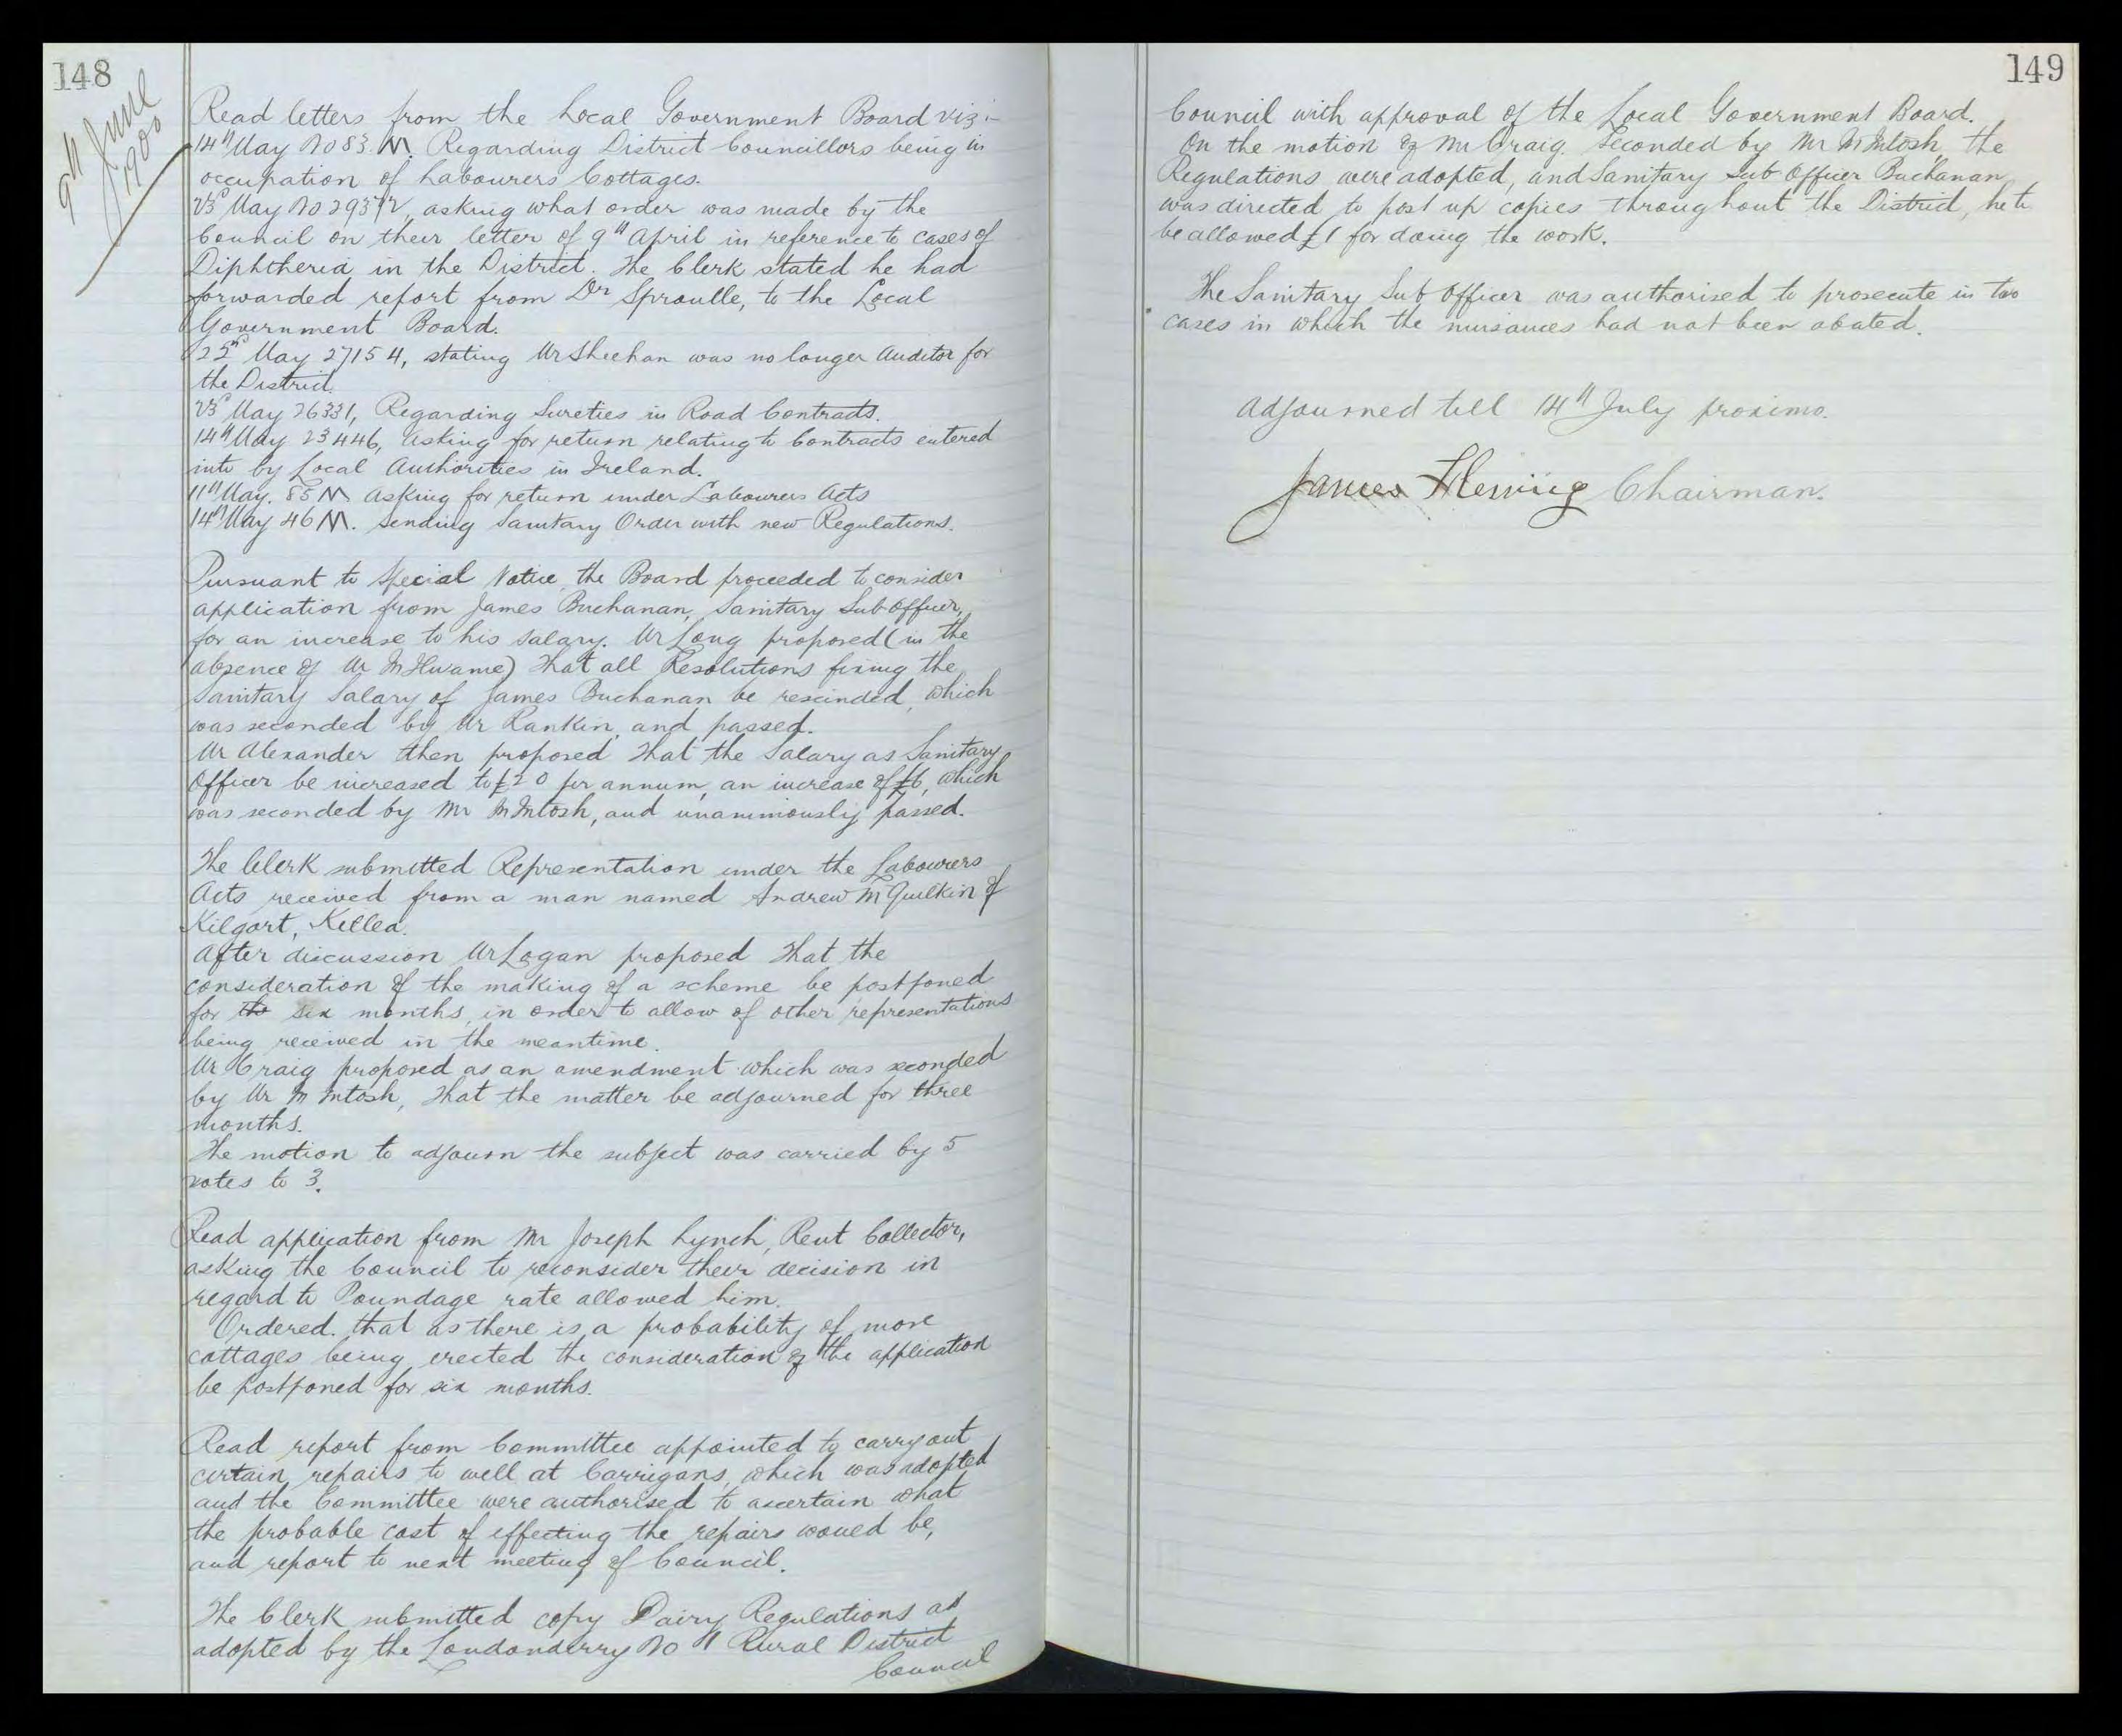 148
9th June
1900
Read letters from the Local Government Board viz:-
14th May No 83.M. Regarding District Councillors being in
occupation of Labourers Cottages.
23rd May No 29372, asking what order was made by the
Council on their letter of 9th April in reference to cases of
Diphtheria in the District. The Clerk stated he had
forwarded report from Dr Sproulle, to the Local
Government Board.
22nd May 27154, stating Mr Sheehan was no longer Auditor for
the District
23rd May 26331, Regarding Sureties in Road Contracts.
14th May 23446, asking for return relating to Contracts entered
into by Local Authorities in Ireland.
11th May. 85 M asking for return under Labourers Acts
14th May 46 M. Sending Sanitary Order with new Regulations.
Pursuant to Special Notice, the Board proceeded to consider
application from James Buchanan, Sanitary Sub Officer,
for an increase to his salary. Mr Long proposed (in the
absence of Mr McIlwaine) That all Resolutions fixing the
Sanitary Salary of James Buchanan be rescinded, which
was seconded by Mr Rankin, and passed.
Mr Alexander then proposed That the Salary as Sanitary
Officer be increased to £20 per annum, an increase of £6, which
was seconded by Mr McIntosh, and unanimously passed.
The Clerk submitted Representation under the Labourers
Acts received from a man named Andrew McQuilkin of
Kilgort, Killea.
After discussion Mr Logan proposed That the
consideration of the making of a scheme be postponed
for six months, in order to allow of other representations
being received in the meantime.
Mr Craig proposed as an amendment which was seconded
by Mr McIntosh, That the matter be adjourned for three
months.
The motion to adjourn the subject was carried by 5
votes to 3.
Read application from Mr Joseph Lynch, Rent Collector,
asking the Council to reconsider their decision in
regard to Poundage rate allowed him.
Ordered. that as there is a probability of more
cottages being erected the consideration of the application
be postponed for six months.
Read report from Committee appointed to carry out
certain repairs to well at Carrigans, which was adopted
and the Committee were authorised to ascertain what
the probable cost of effecting the repairs would be,
and report to next meeting of Council.
The Clerk submitted copy Dairy Regulations as
adopted by the Londonderry No 1 Rural District
Council
149
Council with approval of the Local Government Board.
On the motion of Mr Craig. Seconded by Mr McIntosh, the
Regulations were adopted, and Sanitary Sub Officer Buchanan
was directed to post up copies throughout the District, he to
be allowed £1 for doing the work.
The Sanitary Sub Officer was authorised to prosecute in two
cases in which the nuisances had not been abated.
Adjourned till 14th July proximo.
James Fleming Chairman.